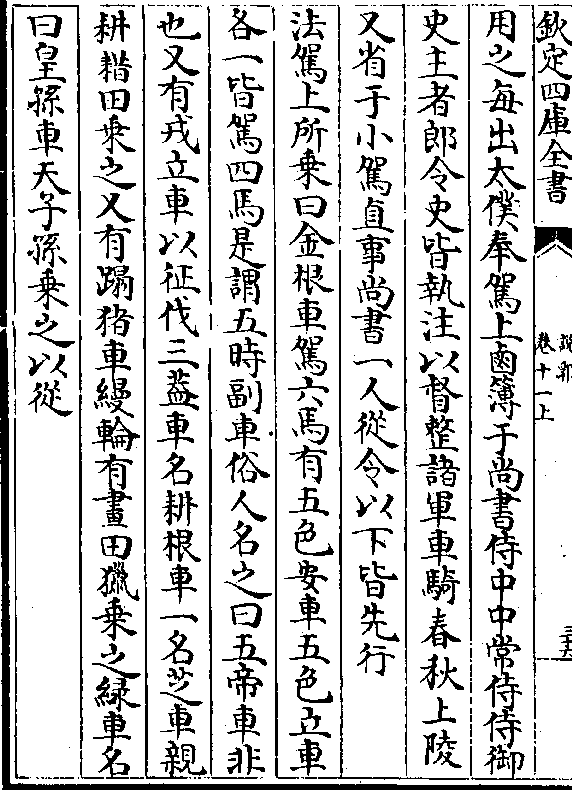 欽定四庫全書
說郛
卷十一上
三六
用之每出太僕奉駕上鹵簿于尚書侍中中常侍侍御
史主者郎令史皆執注以督整諸軍車騎春秋上陵
又省于小駕直事尚書一人從令以下皆先行
法駕上所乗曰金根車駕六馬有五色安車五色立車
各一皆駕四馬是謂五時副車俗人名之曰五帝車非
也又有戎立車以征伐三葢車名耕根車一名芝車親
耕耤田乗之又有蹋猪車縵輪有畫田獵乗之緑車名
曰皇孫車天子孫乗之以從